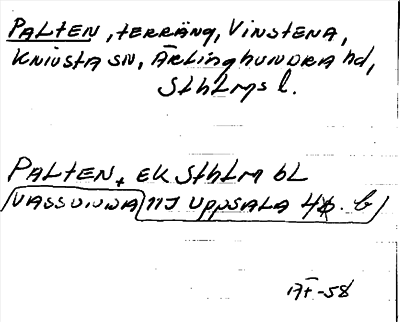 PALTEN, TERRÄNG, VINSTENA,
KNIVSTA SN, ÄRLINGHUNDRA hd,
SthLms l.
PALTEN, EK SthLm bL
VASSUNDA 11J UPPSALA 4 b
17/I-58